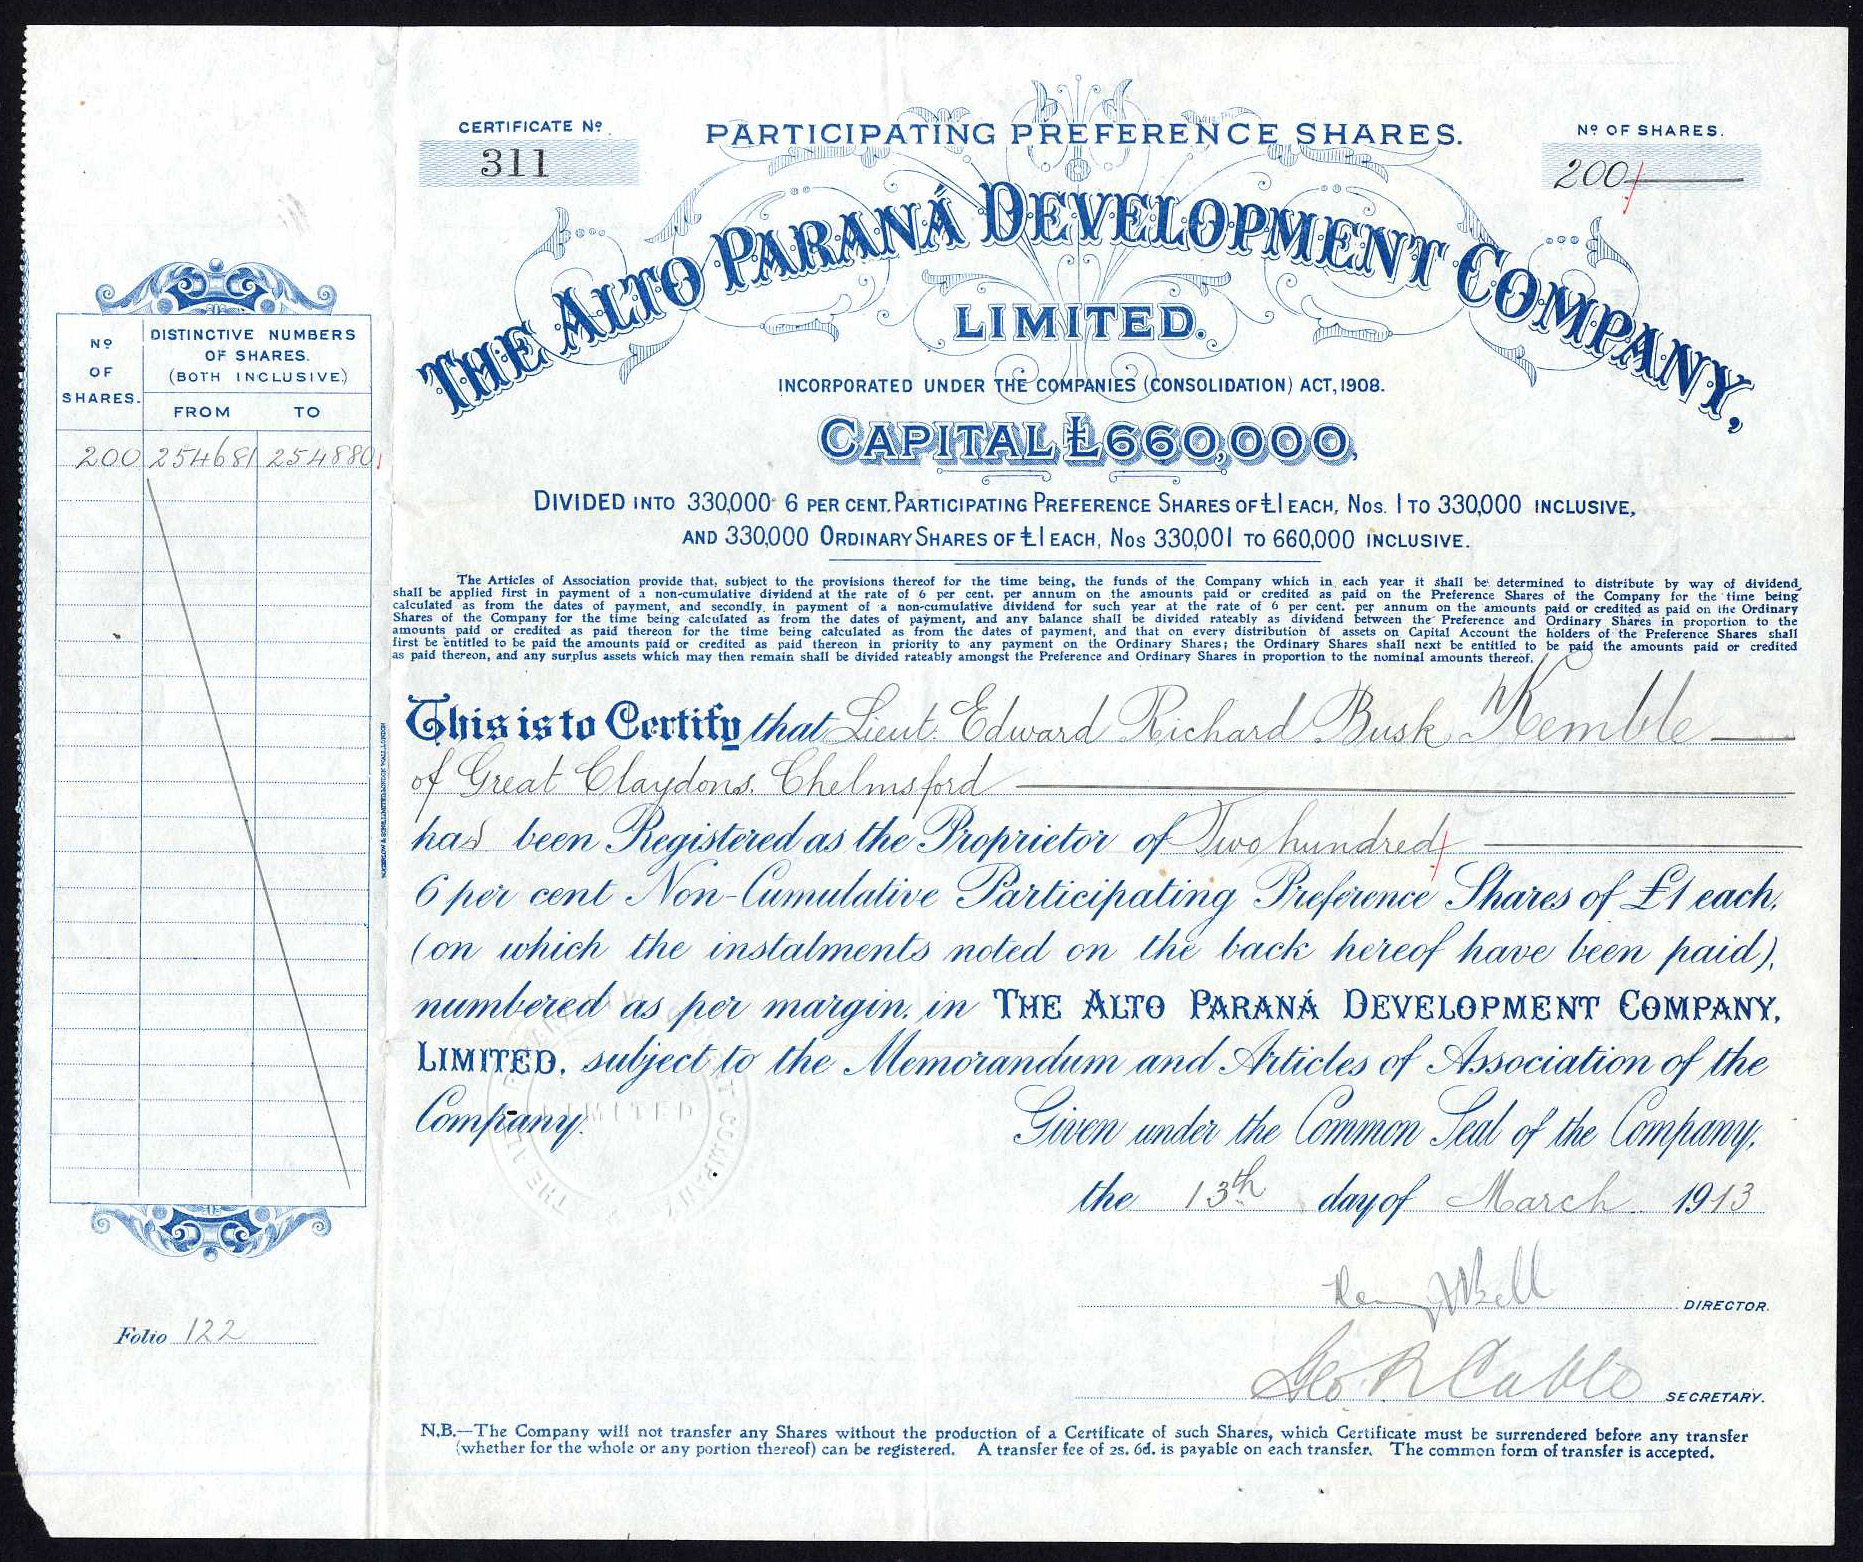 CERTIFICATE No.
311
PARTICIPATING PREFERENCE SHARES.
No OF SHARES.
200
THE ALTO PARANÁ DEVELOPMENT COMPANY,
LIMITED.
INCORPORATED UNDER THE COMPANIES (CONSOLIDATION) ACT, 1908.
CAPITAL £660,000,
DIVIDED INTO 330,000 6 PER CENT. PARTICIPATING PREFERENCE SHARES OF £1 EACH, Nos. 1 TO 330,000 INCLUSIVE,
AND 330,000 ORDINARY SHARES OF £1 EACH, Nos 330,001 TO 660,000 INCLUSIVE.
The Articles of Association provide that, subject to the provisions thereof for the time being, the funds of the Company which in each year it shall be determined to distribute by way of dividend,
shall be applied first in payment of a non-cumulative dividend at the rate of 6 per cent. per annum on the amounts paid or credited as paid on the Preference Shares of the Company for the time being
calculated as from the dates of payment, and secondly in payment of a non-cumulative dividend for such year at the rate of 6 per cent. per annum on the amounts paid or credited as paid on the Ordinary
Shares of the Company for the time being calculated as from the dates of payment, and any balance shall be divided rateably as dividend between the Preference and Ordinary Shares in proportion to the
amounts paid or credited as paid thereon for the time being calculated as from the dates of payment, and that on every distribution of assets on Capital Account the holders of the Preference Shares shall
first be entitled to be paid the amounts paid or credited as paid thereon in priority to any payment on the Ordinary Shares; the Ordinary Shares shall next be entitled to be paid the amounts paid or credited
as paid thereon, and any surplus assets which may then remain shall be divided rateably amongst the Preference and Ordinary Shares in proportion to the nominal amounts thereof.
This is to Certify that Lieut. Edward Richard Busk Kemble
of Great Claydons. Chelmsford
has been Registered as the Proprietor of Two hundred
6 per cent Non-Cumulative Participating Preference Shares of £1 each,
(on which the instalments noted on the back hereof have been paid),
numbered as per margin, in THE ALTO PARANÁ DEVELOPMENT COMPANY,
LIMITED, subject to the Memorandum and Articles of Association of the
Company.
Given under the Common Seal of the Company,
the 13th day of March 1913
DIRECTOR.
Geo. R Cable
SECRETARY.
N.B.—The Company will not transfer any Shares without the production of a Certificate of such Shares, which Certificate must be surrendered before any transfer
(whether for the whole or any portion thereof) can be registered. A transfer fee of 2s. 6d. is payable on each transfer. The common form of transfer is accepted.
No OF SHARES.
DISTINCTIVE NUMBERS
OF SHARES.
(BOTH INCLUSIVE)
FROM TO
200 254681 254880
Folio 122
LIMITED